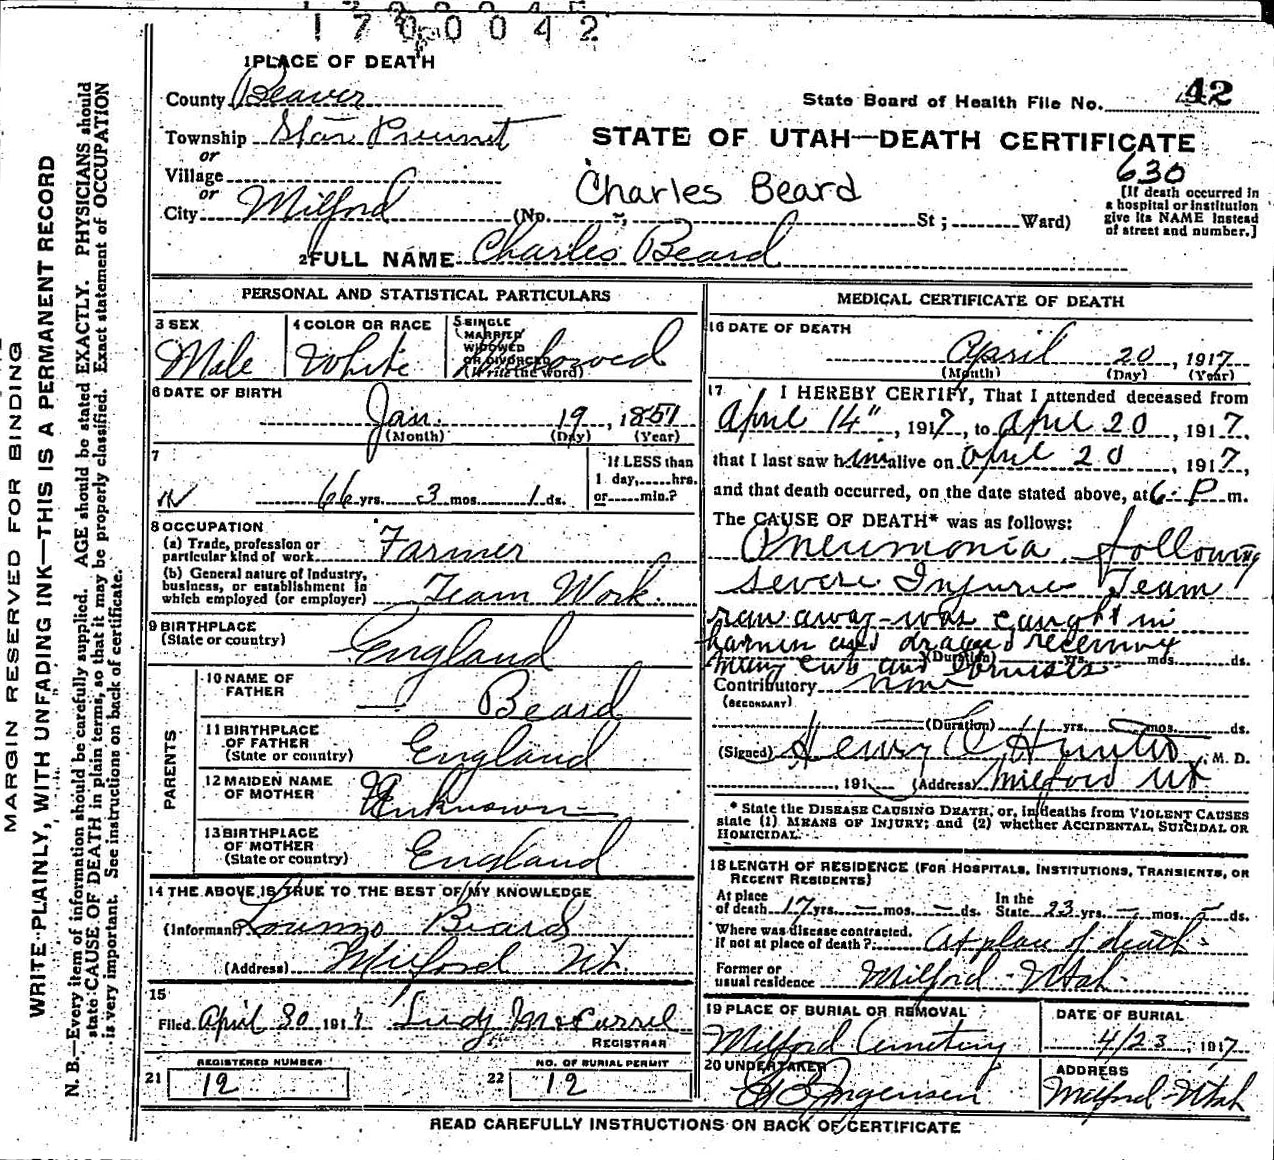 1700042
1 PLACE OF DEATH
County Beaver
State Board of Health File No. 42
Township Star Precinct
or
Village
or
City Milford
STATE OF UTAH—DEATH CERTIFICATE
630
Charles Beard
(No. St ; Ward)
[If death occurred in
a hospital or institution
give its NAME instead
of street and number.]
2 FULL NAME Charles Beard
PERSONAL AND STATISTICAL PARTICULARS
3 SEX
Male
4 COLOR OR RACE
White
5 SINGLE
MARRIED
WIDOWED
OR DIVORCED
(Write the word)
Widowed
6 DATE OF BIRTH
Jan. 19, 1851
(Month) (Day) (Year)
7
66 yrs. 3 mos. 1 ds.
If LESS than
1 day, hrs.
or min.?
8 OCCUPATION
(a) Trade, profession or
particular kind of work Farmer
(b) General nature of industry,
business, or establishment in
which employed (or employer) Team Work.
9 BIRTHPLACE
(State or country) England
PARENTS
10 NAME OF
FATHER — Beard
11 BIRTHPLACE
OF FATHER
(State or country) England
12 MAIDEN NAME
OF MOTHER Unknown
13 BIRTHPLACE
OF MOTHER
(State or country) England
14 THE ABOVE IS TRUE TO THE BEST OF MY KNOWLEDGE
(Informant) Lorenzo Beard
(Address) Milford Ut.
15
Filed April 30 1917 McCarrel
REGISTRAR
REGISTERED NUMBER
21 12
NO. OF BURIAL PERMIT
22 12
MEDICAL CERTIFICATE OF DEATH
16 DATE OF DEATH
April 20, 1917
(Month) (Day) (Year)
17 I HEREBY CERTIFY, That I attended deceased from
April 14", 1917, to April 20, 1917,
that I last saw him alive on April 20, 1917,
and that death occurred, on the date stated above, at 6- P m.
The CAUSE OF DEATH* was as follows:
Pneumonia following
severe Injurie Team
ran away—was caught in
and draged receiving
many cuts and bruises
(Duration) yrs. mos. ds.
Contributory none
(SECONDARY)
(Duration) yrs. mos. ds.
(Signed) Henry C Hunter, M. D.
, 191 (Address) Milford Ut
* State the DISEASE CAUSING DEATH, or, in deaths from VIOLENT CAUSES
state (1) MEANS OF INJURY; and (2) whether ACCIDENTAL, SUICIDAL OR
HOMICIDAL.
18 LENGTH OF RESIDENCE (FOR HOSPITALS, INSTITUTIONS, TRANSIENTS, OR
RECENT RESIDENTS)
At place
of death 17 yrs. — mos. — ds.
In the
State 23 yrs. — mos. — ds.
Where was disease contracted.
If not at place of death ? At place of death.
Former or
usual residence Milford - Utah.
19 PLACE OF BURIAL OR REMOVAL
Milford Cemetery
DATE OF BURIAL
4/23, 1917
20 UNDERTAKER
Jorgensen
ADDRESS
Milford-Utah
READ CAREFULLY INSTRUCTIONS ON BACK OF CERTIFICATE
MARGIN RESERVED FOR BINDING
WRITE PLAINLY, WITH UNFADING INK—THIS IS A PERMANENT RECORD
N. B.—Every item of information should be carefully supplied. AGE should be stated EXACTLY. PHYSICIANS should
state CAUSE OF DEATH in plain terms, so that it may be properly classified. Exact statement of OCCUPATION
is very important. See instructions on back of certificate.